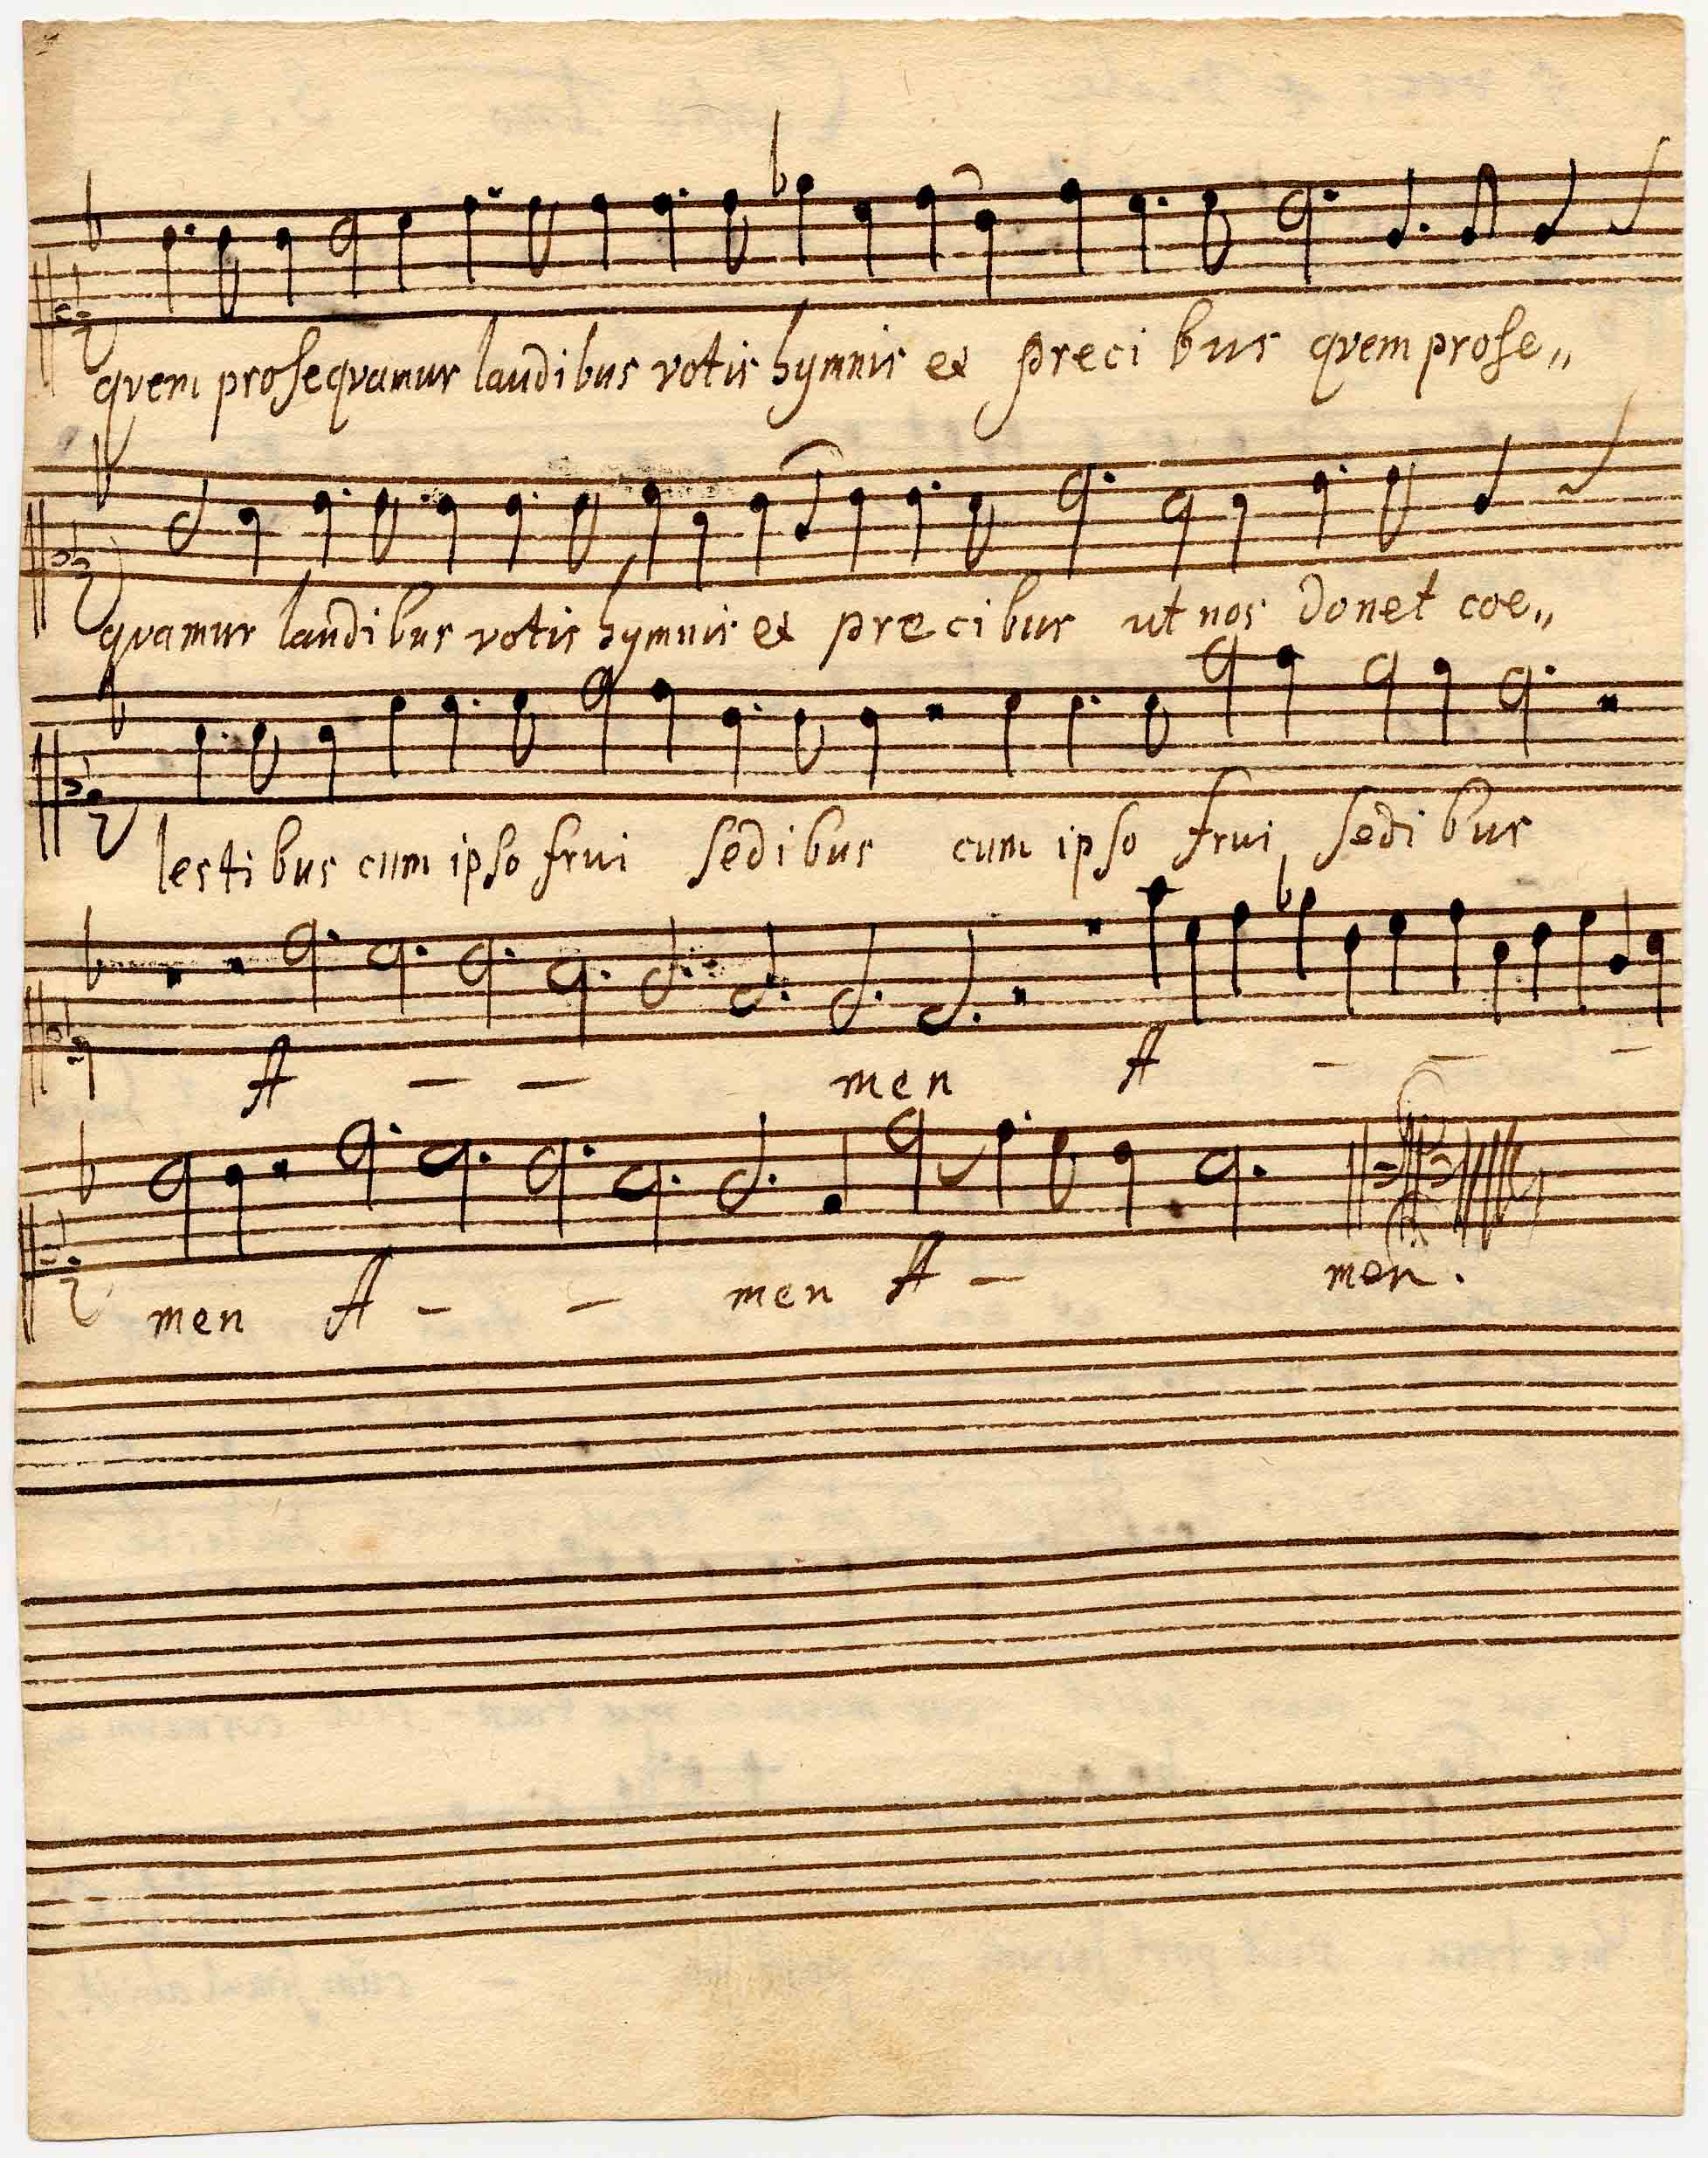 quem prosequamur laudibus votis hymnis et preci bus quem prose„
quamur laudibus votis hymnis et precibus ut nos donet coe„
lestibus cum ipso frui sedibus cum ipso frui sedibus
A — — men A — — —
men A — — men A — men.